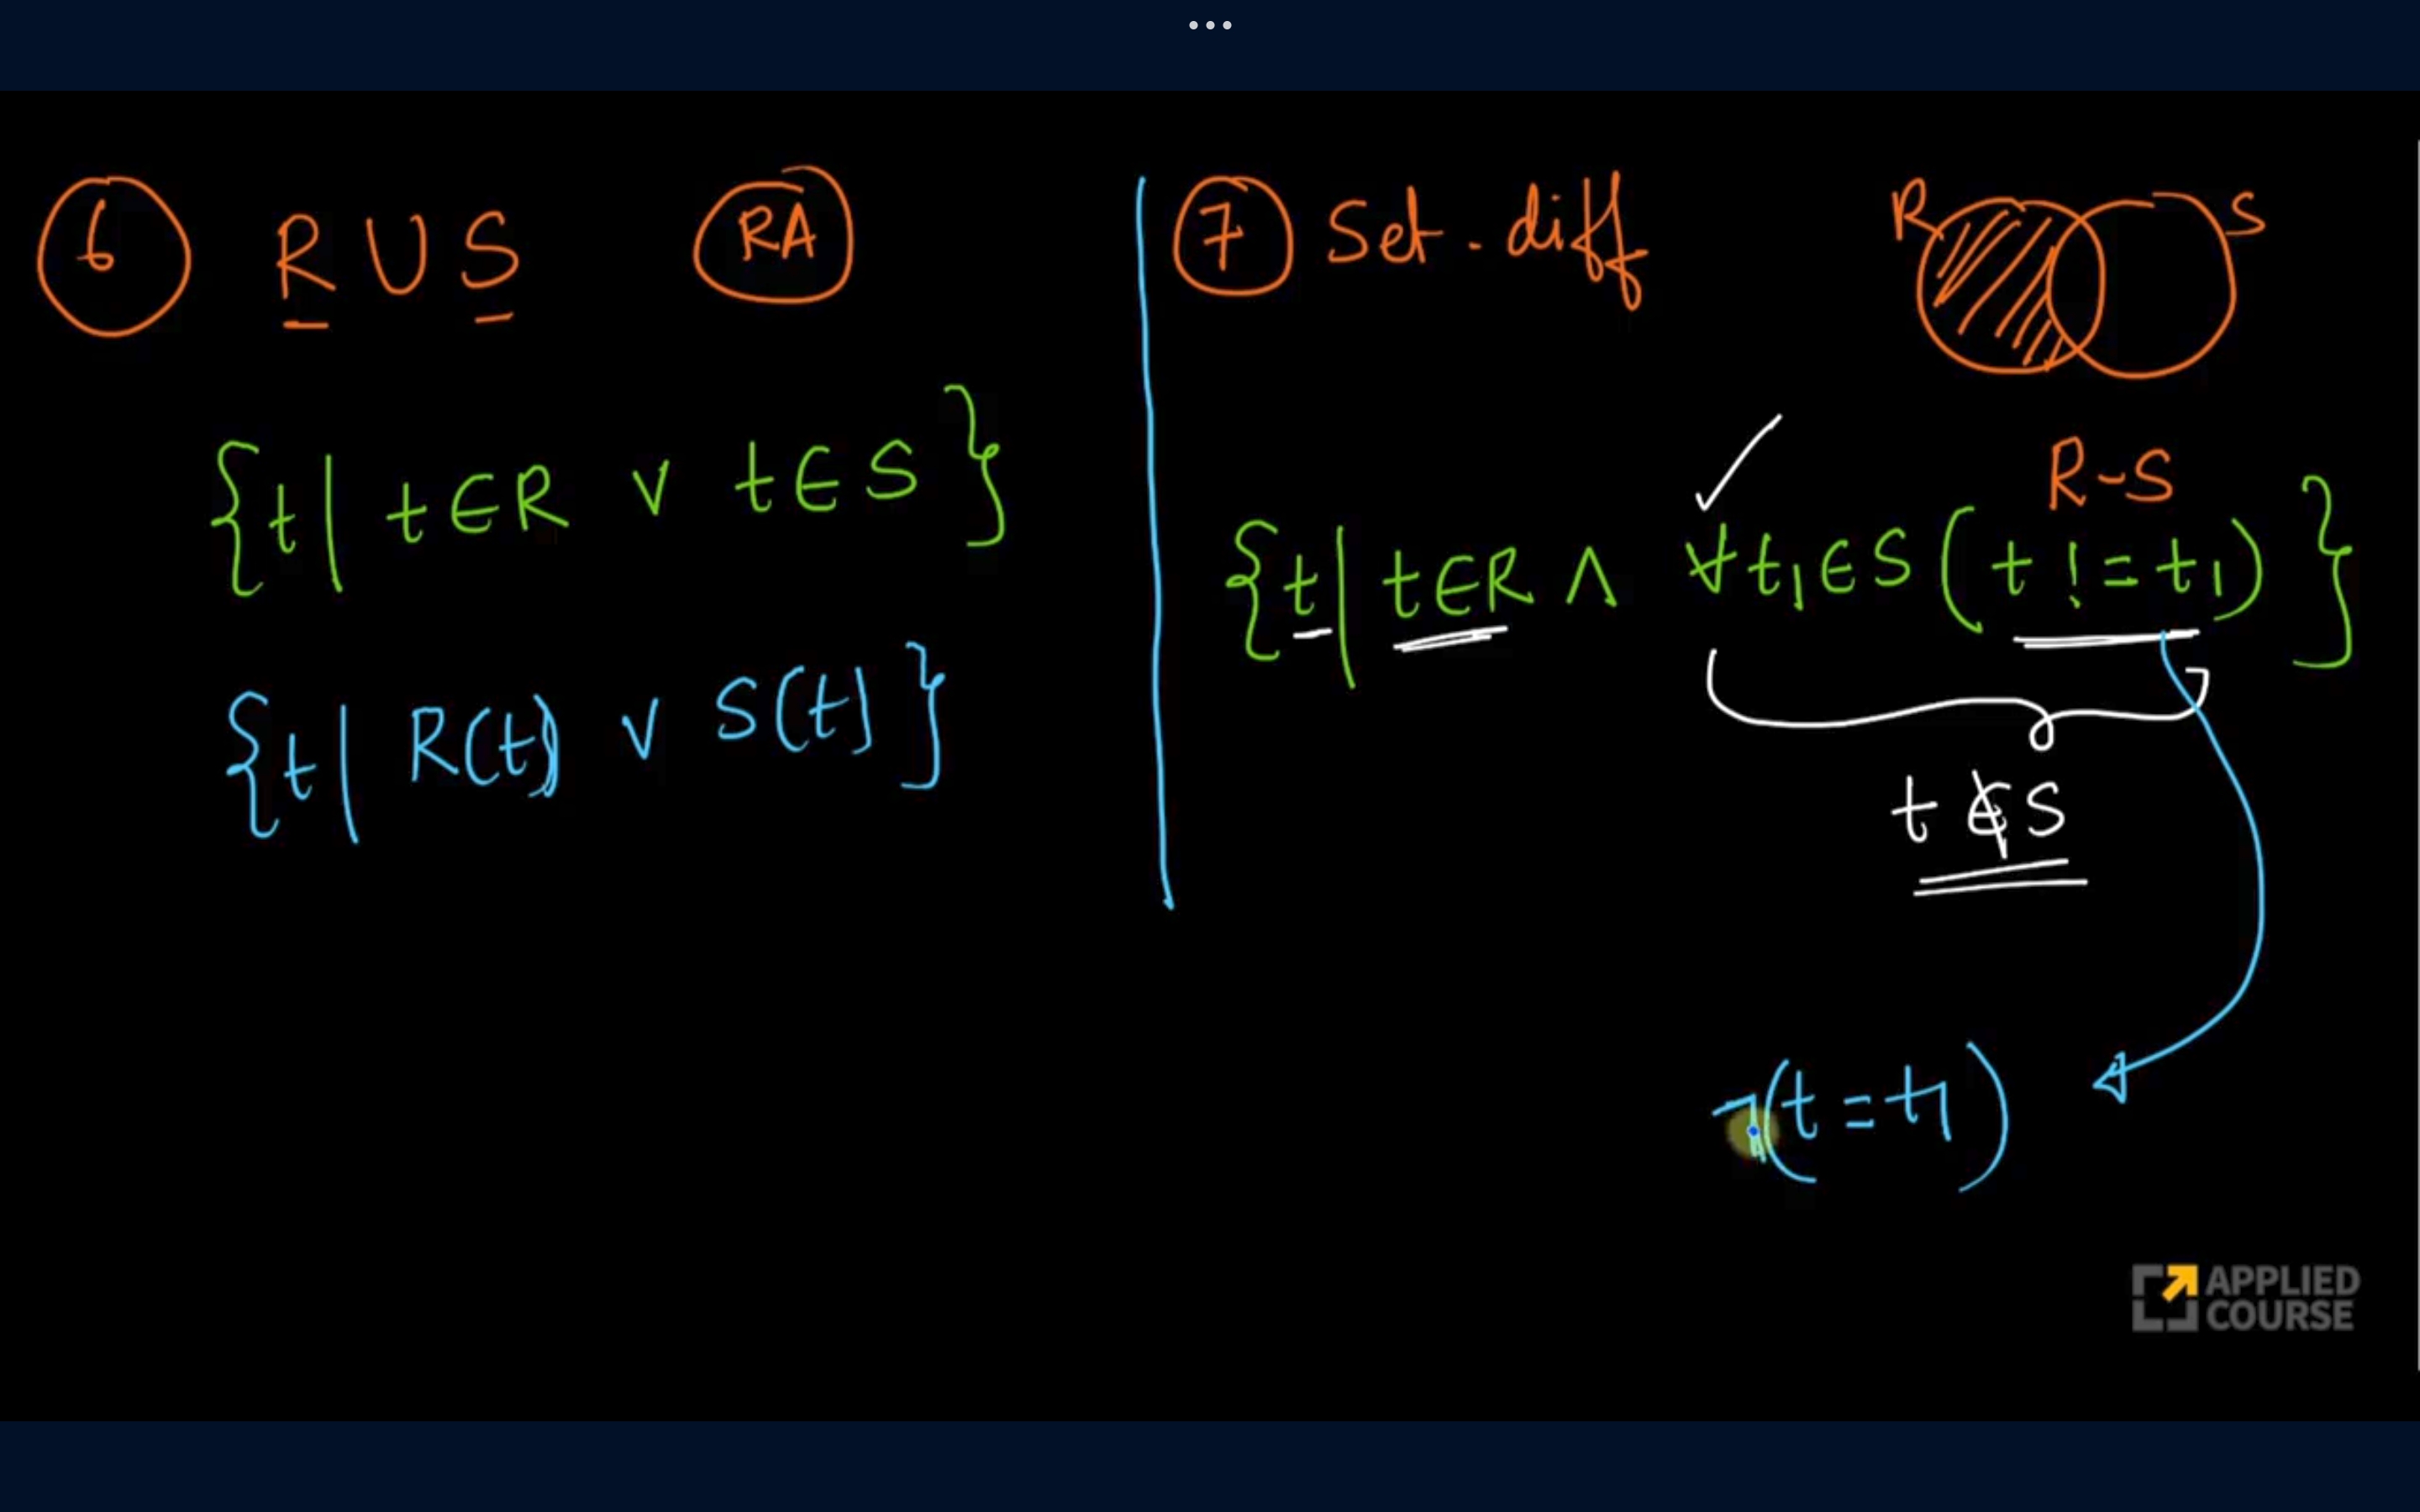 6 R ∪ S RA
{t | t ∈ R ∨ t ∈ S}
{t | R(t) ∨ S(t)}
7 Set-diff
R S
R-S
{t | t ∈ R ∧ ∀t₁ ∈ S (t != t₁)}
t ∉ S
¬(t = t₁)
APPLIED
COURSE